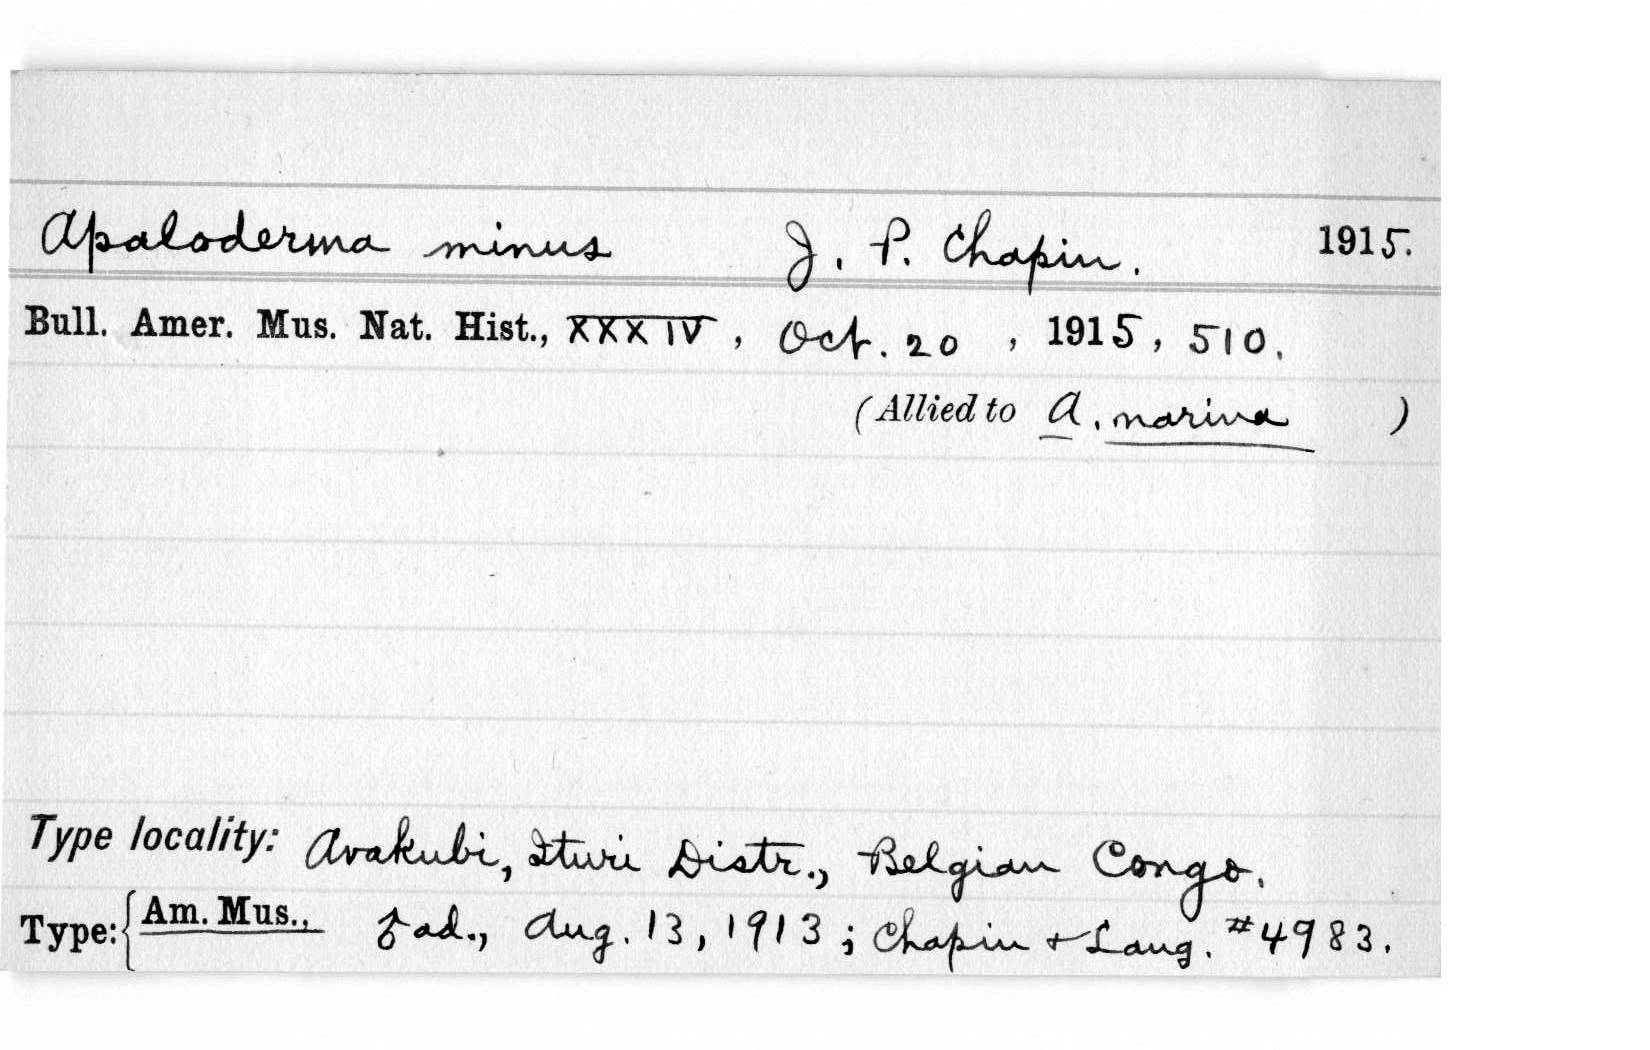 Apaloderma minus J. P. Chapin. 1915.
Bull. Amer. Mus. Nat. Hist., XXXIV, Oct. 20, 1915, 510.
(Allied to A. narina)
Type locality: Avakubi, Ituri Distr., Belgian Congo.
Type: { Am. Mus., ♂ ad., Aug. 13, 1913; Chapin + Lang. #4983.